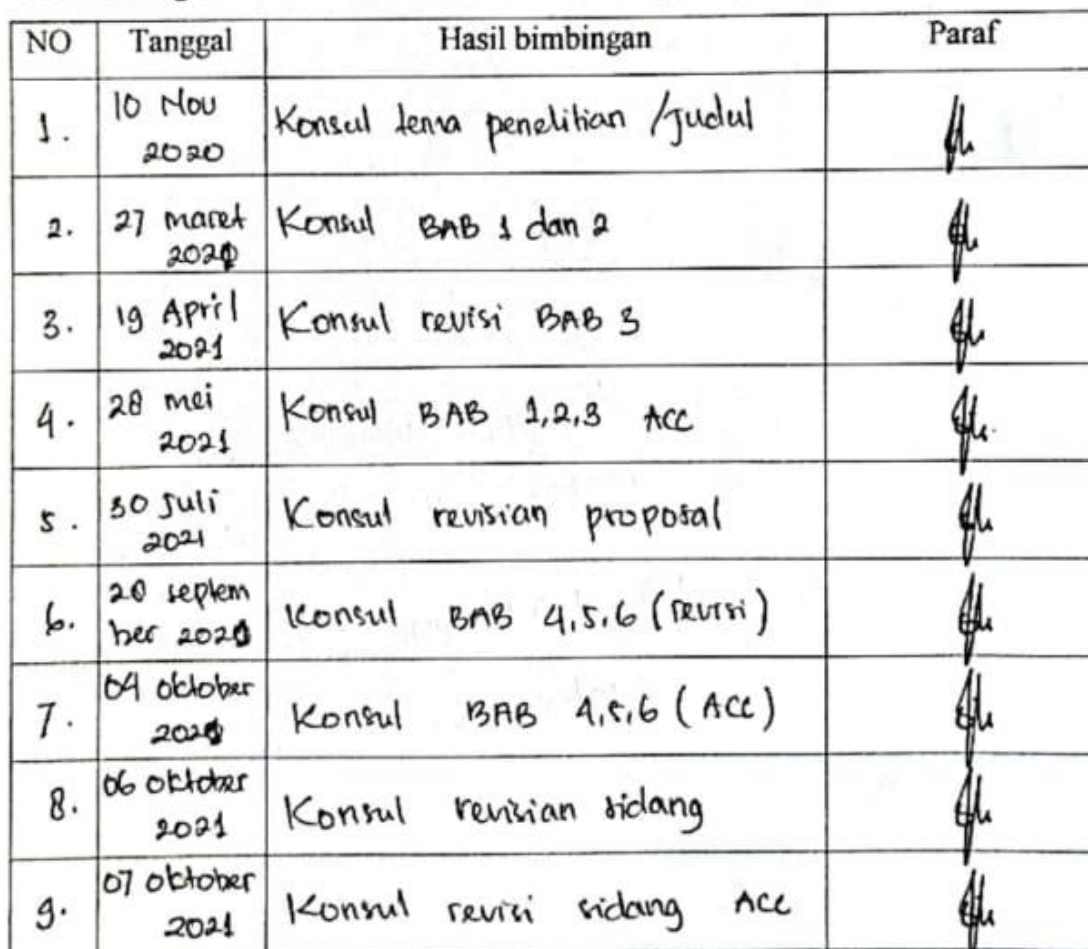 NO Tanggal Hasil bimbingan Paraf
1. 10 Nov 2020 Konsul tema penelitian /Judul
2. 27 maret 2021 Konsul BAB 1 dan 2
3. 19 April 2021 Konsul revisi BAB 3
4. 28 mei 2021 Konsul BAB 1,2,3 ACC
5. 30 Juli 2021 Konsul revisian proposal
6. 28 septem ber 2021 Konsul BAB 4,5,6 (revisi)
7. 04 oktober 2021 Konsul BAB 4,5,6 (ACC)
8. 06 oktober 2021 Konsul revisian sidang
9. 07 oktober 2021 Konsul revisi sidang ACC